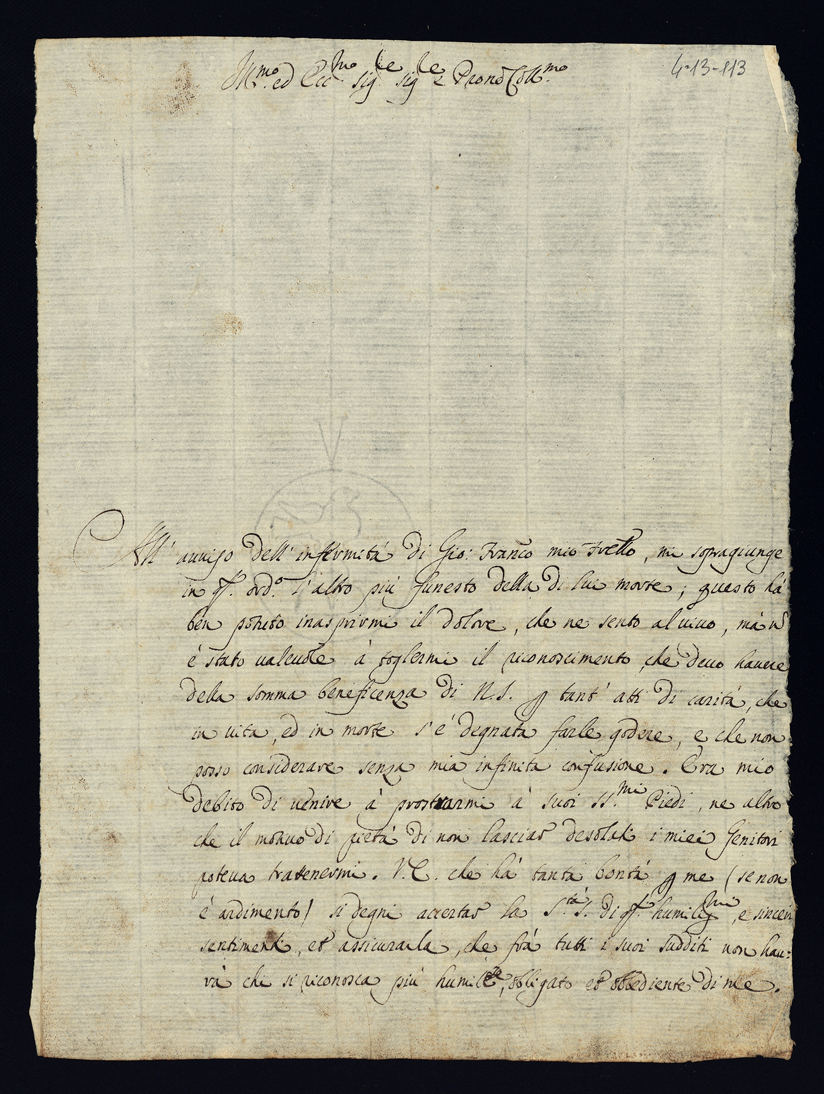 Ill.mo ed Ecc.mo Sig.re Sig.re e Pron̄ Coll.mo
4-13-113
All' auuiso dell' infermità di Gio: Franco mio Frēllo, mi sopragiunge
in q.to ord.o l'altro più funesto della di lui morte; questo hà
ben potuto inasprirmi il dolore, che ne sento al uiuo, mà ñ
è stato ualeuole à toglermi il riconoscimento, che deuo hauere
della somma beneficenza di N.S. p tant' atti di carità, che
in uita, ed in morte s'è degnata farle godere, e che non
posso considerare senza mia infinita confusione. Era mio
debito di uenire à prostrarmi à suoi SS.mi Piedi, ne altro
che il motiuo di pietà di non lasciar desolati i miei Genitori
poteua tratenermi. V.E. che hà tanta bontà p me (se non
è ardimento) si degni accertar la S.tà S. di q.ti humiliss.mi, e sinceri
sentimenti, et assicurarla, che frà tutti i suoi sudditi non hau:
rà chi si riconosca più humile, obligato et obediente di me.